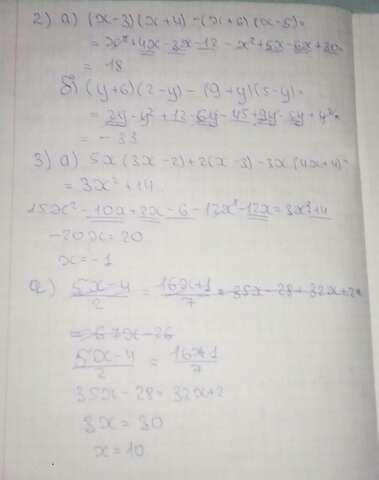 2) а) (x-3)(x+4) -(x+6)(x-5)=
= x²+4x-3x-12 - x²+5x-6x+30=
= 18
б) (y+6)(2-y) - (9+y)(5-y)=
= 2y-y²+12-6y-45+9y-5y+y²=
= -33
3) а) 5x(3x-2)+2(x-3)-3x(4x+4)=
= 3x²+14
15x²-10x+2x-6-12x²-12x=3x²+14
-20x=20
x=-1
5x-4/2 = 16x+1/7 = 35x-28+32x+2=
= 67x-26
5x-4/2 = 16x+1/7
35x-28=32x+2
3x=30
x=10